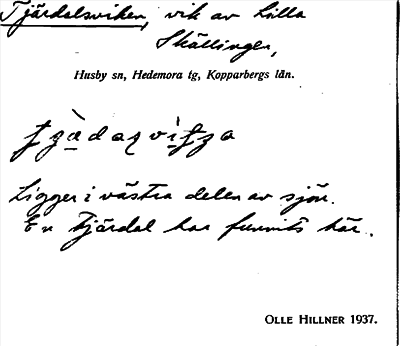 Tjärdalsviken, vik av Lilla
Skällingen,
Husby sn, Hedemora tg, Kopparbergs län.
Ligger i västra delen av sjön.
En tjärdal har funnits här.
OLLE HILLNER 1937.